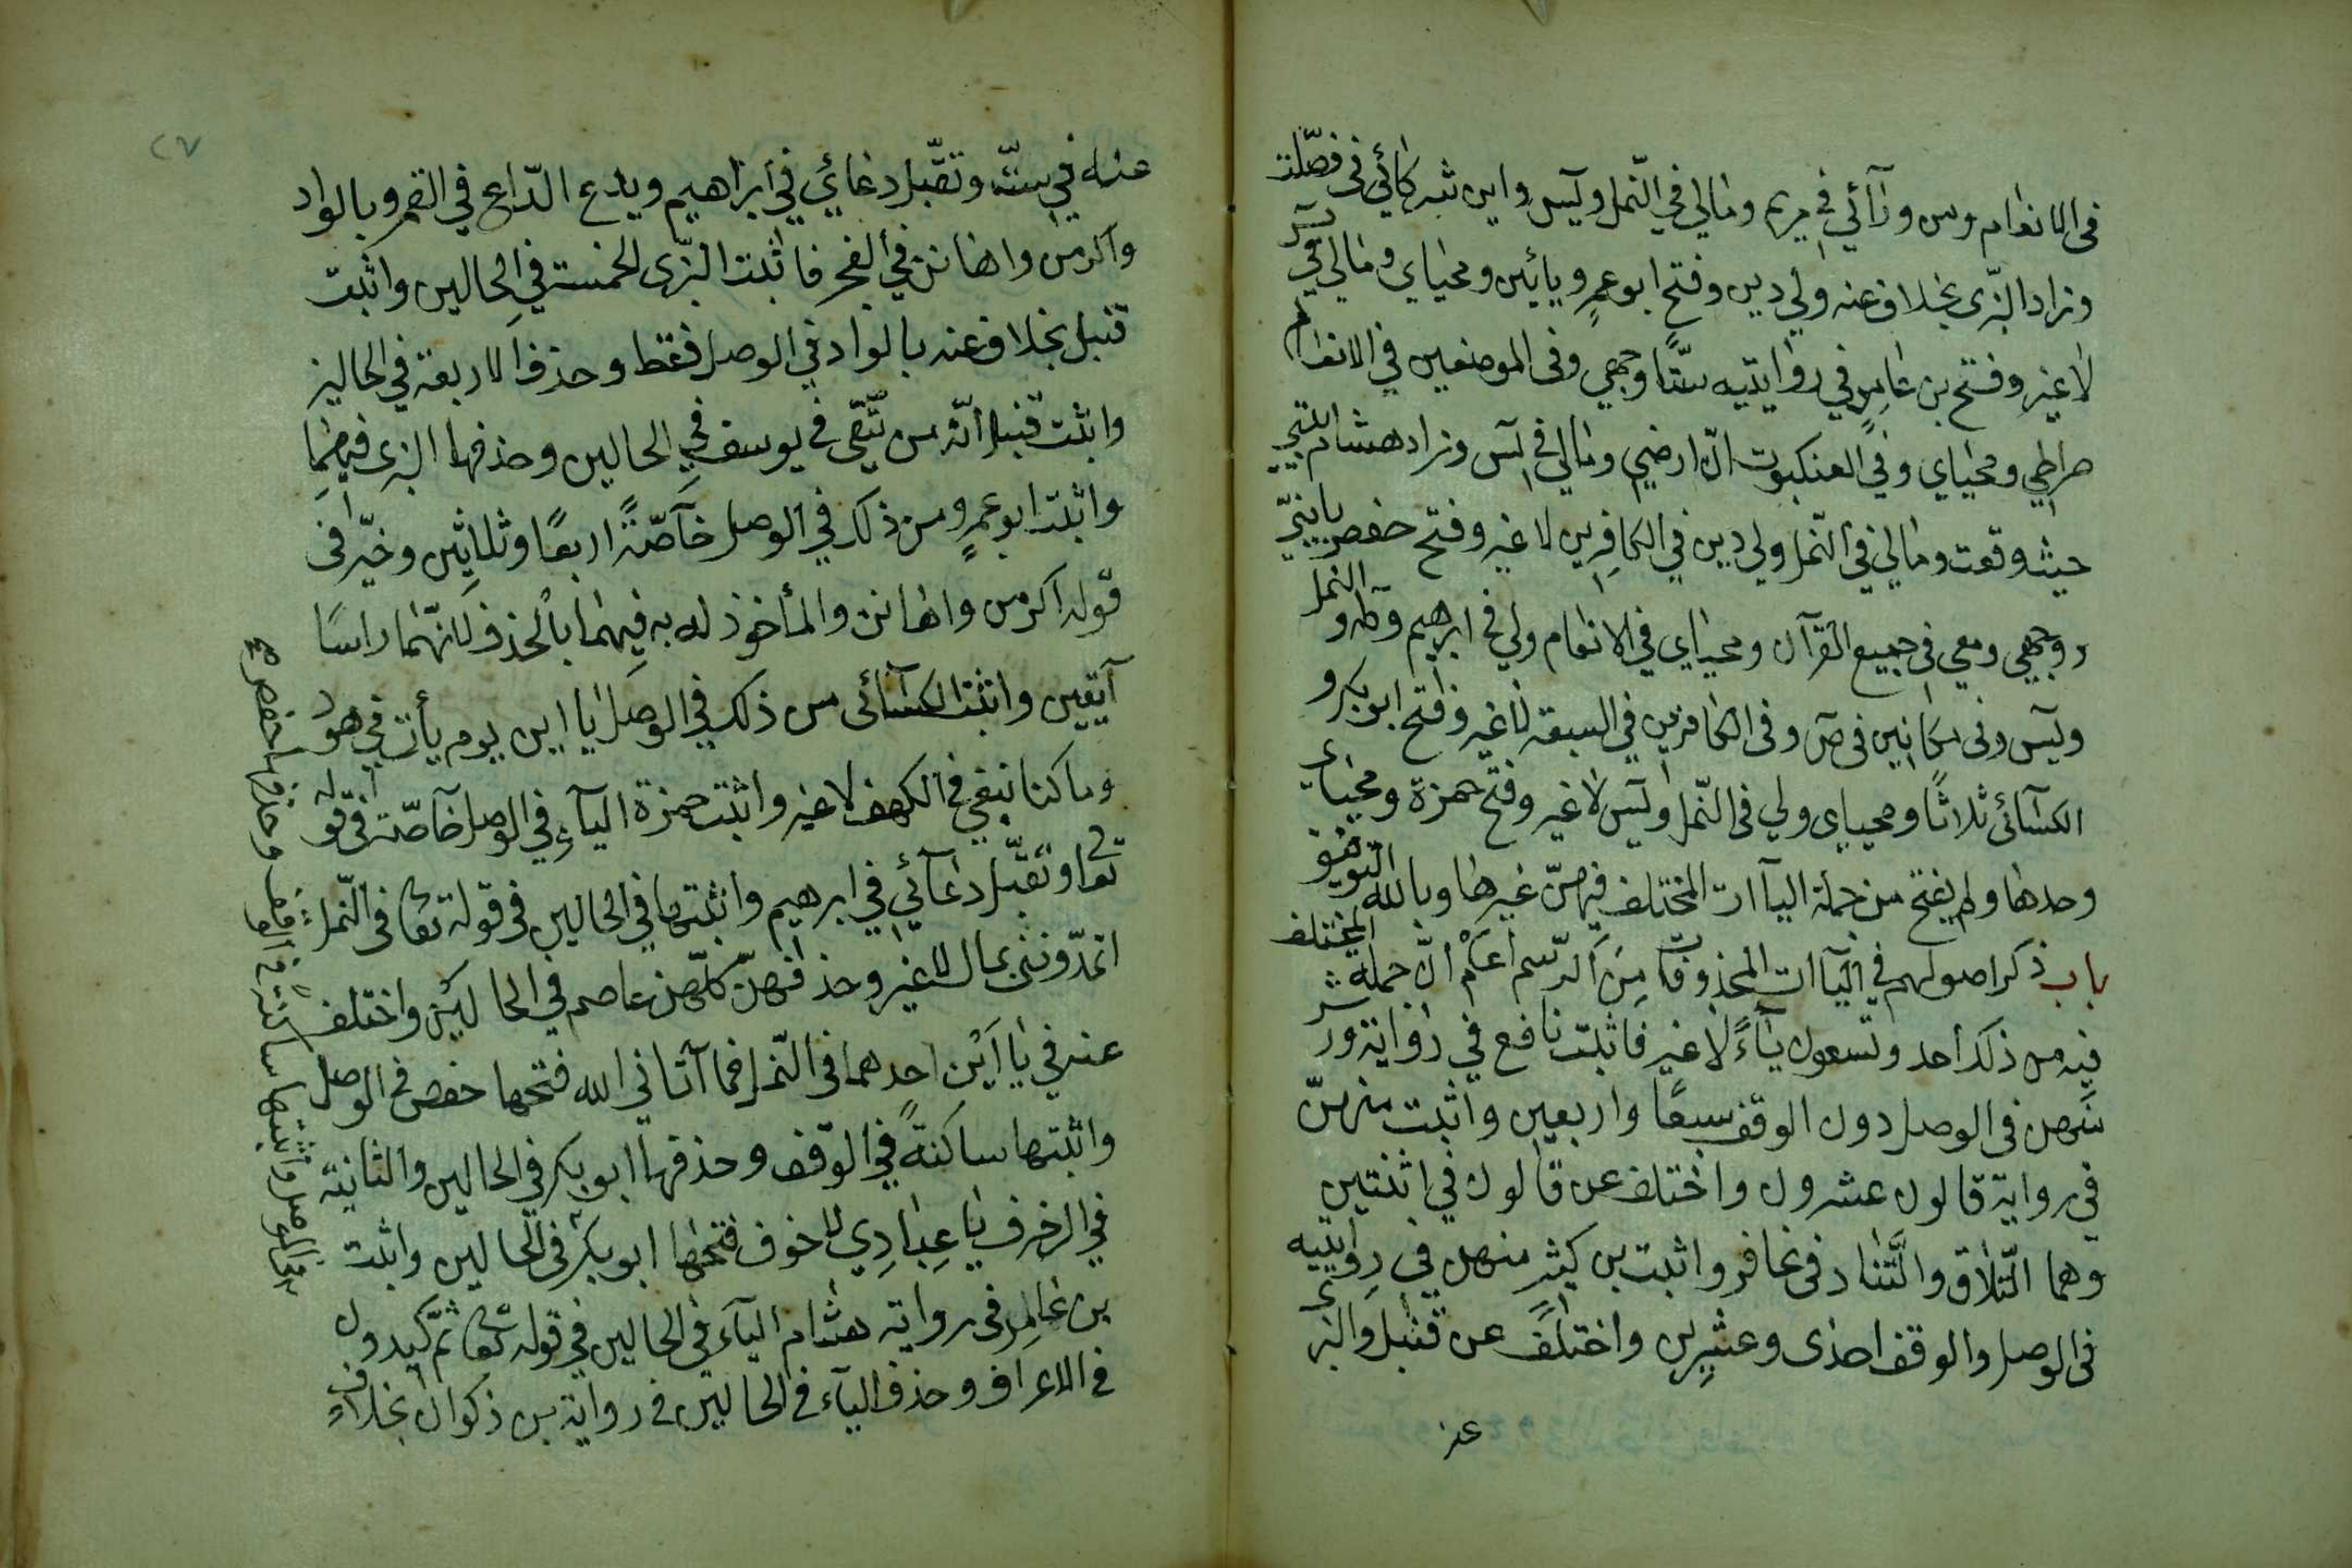 فى الانعام ومن ورآئي في مريم ومالي في النّمل ويٓس واين شركائي فى فصّلت
وزاد البزّى بخلاف عنه ولي دين وفتح ابو عمرٍو يائين ومحياي ومالي في يٓس
لا غير وفتح بن عامرٍ في روايتيه ستّا وجهي وفى الموضعين في الانعام
صراطي ومحياي وفي العنكبوت انّ ارضي ومالي في يٓس وزاد هشام بيتي
حيث وقعت ومالي في النّمل ولي دين في الكافرين لا غير وفتح حفص يا بنيّ
ووجهي ومعي فى جميع القرآن ومحياي في الانعام ولي في ابرهيم وطه والنمل
ويٓس وفى مكانين فى صٓ وفى الكافرين في السبعة لا غير وفتح ابو بكر و
الكسآئى ثلاثًا ومحياى ولي فى النّمل ويٓس لا غير وفتح حمزة ومحياى
وحدها ولم يفتح من جملة اليآات المختلف فيهنّ غيرها وبالله التوفيق
باب ذكر اصولهم في اليآات المحذوفات مِنَ الرّسم اعلم انّ جملة المختلف
فيه من ذلك أحد وتسعون ياءً لا غير فاثبت نافع في رواية ورش
منهن فى الوصل دون الوقف سبعًا واربعين واثبت منهنّ
في رواية قالون عشرون واختلف عن قالون في اثنتين
وهما التّلاق والتّناد فى غافر واثبت بن كثيرٍ منهن في روايتيه
فى الوصل والوقف احدى وعشرين واختلف عن قنبل والبزى
عنه
٢٧
عنه في ستّة وتقبّل دعائي في ابراهيم ويدع الدّاع في القمر وبالواد
واكرمن واهانن في الفجر فاثبت البزّى الخمسة في الحالين واثبت
قنبل بخلاف عنه بالواد في الوصل فقط وحذف الاربعة في الحالين
واثبت قنبل انّه من يتّقى في يوسف في الحالين وحذفها البزى فيهما
واثبت ابو عمرٍو من ذلك في الوصل خآصّةً اربعًا وثلاثين وخيّر فى
قوله اكرمن واهانن والمأخوذ له به فيهما بالحذف لانّهما راسا
آيتين واثبت الكسآئى من ذلك في الوصل ياايين يوم يأت في هود
وما كنا نبغي في الكهف لا غير واثبت حمزة اليآء في الوصل خآصّة فى قوله
تعا وتقبّل دعآئي في ابرهيم واثبتها في الحالين في قوله تعا فى النّمل
اتمدّونني بمال لا غير وحذفهنّ كلّهن عاصم في الحالين واختلف
عنه في ياايْن احدهما فى النّمل فما آتاني الله فتحها حفص في الوصل
واثبتها ساكنةً في الوقف وحذفها ابو بكر في الحالين والثانية
في الزخرف يا عِبادِي لا خوف فتحها ابو بكر فى الحالين واثبت
بن عامِر فى رواية هشام اليآء في الحالين في قوله تعا ثمّ كيدون
في الاعراف وحذف اليآء في الحالين في رواية بن ذكوان بخلاف
في الوصل واثبتها ساكنة في الوقف وحذفها حفص